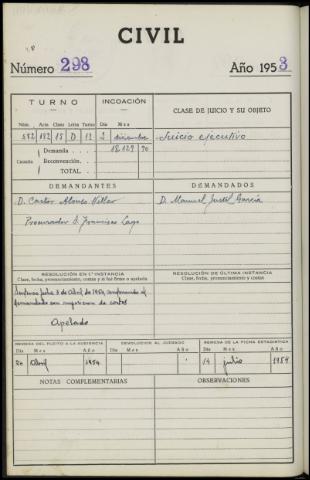 CIVIL
Número 298 Año 1953
TURNO INCOACIÓN CLASE DE JUICIO Y SU OBJETO
Núm. Acta Clase Letra Turno Día Mes
572 182 15 D 12 2 diciembre Juicio ejecutivo
Cuantía Demanda 18.129 70
Reconvención
TOTAL
DEMANDANTES DEMANDADOS
D. Castor Alonso D. Manuel Justel García
Procurador S. Francisco Lago
RESOLUCIÓN EN 1.ª INSTANCIA RESOLUCIÓN DE ÚLTIMA INSTANCIA
Clase, fecha, pronunciamiento, costas y si fué firme o apelada Clase, fecha, pronunciamiento y costas
Sentencia fecha 3 de Abril de 1954, condenando al
demandado con imposición de costas
Apelada
REMESA DEL PLEITO A LA AUDIENCIA DEVOLUCIÓN AL JUZGADO REMESA DE LA FICHA ESTADÍSTICA
Día Mes Año Día Mes Año Día Mes Año
20 Abril 1954 14 julio 1954
NOTAS COMPLEMENTARIAS OBSERVACIONES